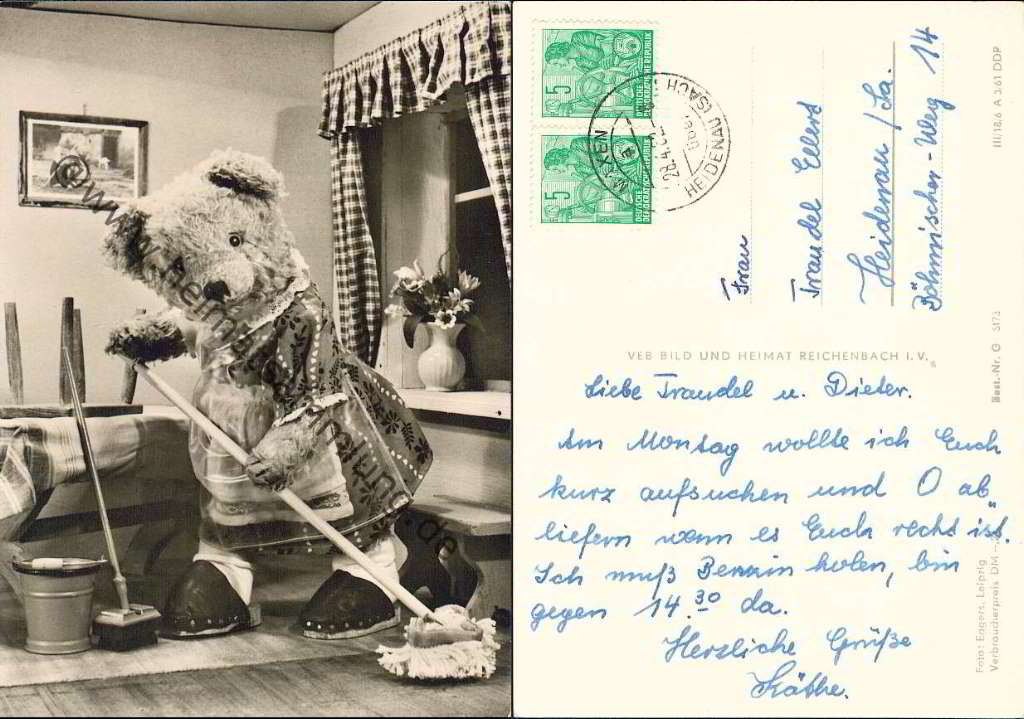 @www.heimatsammlung.de
5
DEUTSCHE
DEMOKRATISCHE REPUBLIK
5
DEUTSCHE
DEMOKRATISCHE REPUBLIK
MAXEN
HEIDENAU (SACH
Frau
Traudel Ellert
Heidenau / Sa.
Böhmischer-Weg 14
III/18.6 A 3/61 DDR
VEB BILD UND HEIMAT REICHENBACH I. V.
Best.-Nr. G 5173
Foto: Eggers, Leipzig
Verbraucherpreis DM
Liebe Traudel u. Dieter.
Am Montag wollte ich Euch
kurz aufsuchen und O ab„
liefern wenn es Euch recht ist.
Ich muß Benzin holen, bin
gegen 14 30 da.
Herzliche Grüße
Käthe.